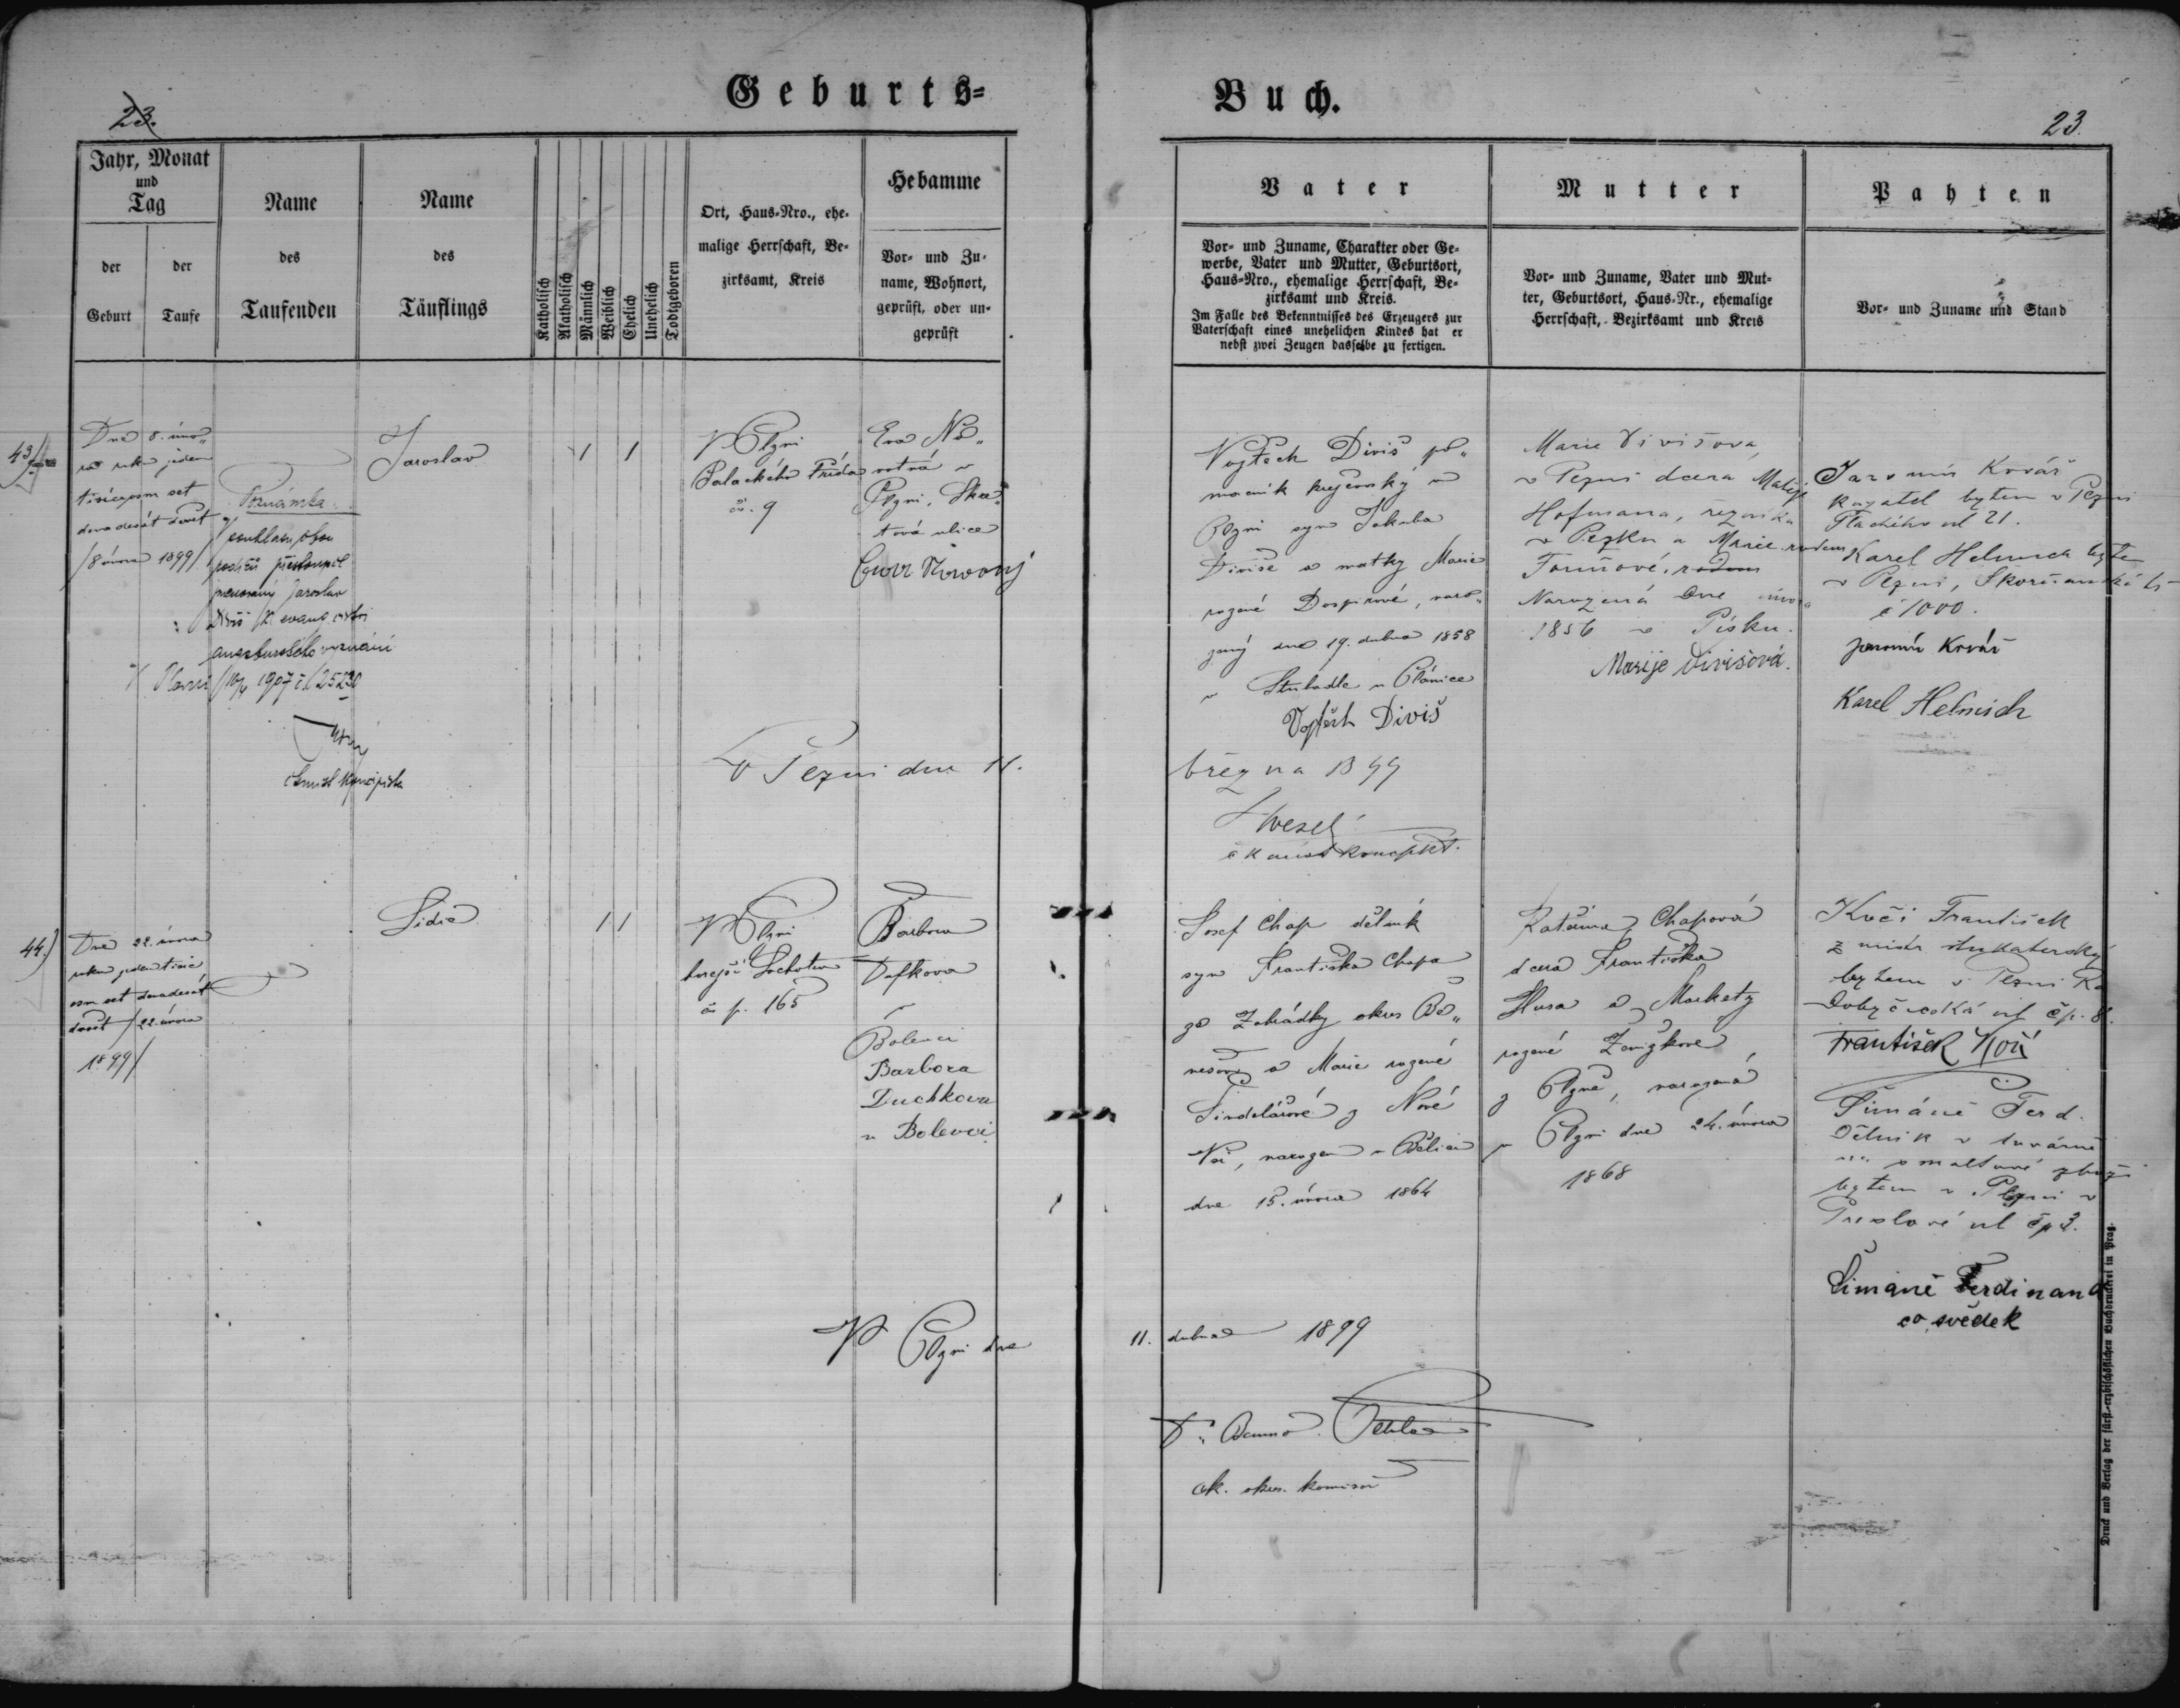 Geburts=
Buch.
23.
23.
Jahr, Monat
und
Tag
der
Geburt
der
Taufe
Name
des
Taufenden
Name
des
Täuflings
Katholisch
Akatholisch
Männlich
Weiblich
Ehelich
Unehelich
Todtgeboren
Ort, Haus-Nro., ehe-
malige Herrschaft, Be-
zirksamt, Kreis
Hebamme
Vor- und Zu-
name, Wohnort,
geprüft, oder un-
geprüft
Vater
Vor- und Zuname, Charakter oder Ge-
werbe, Vater und Mutter, Geburtsort,
Haus-Nro., ehemalige Herrschaft, Be-
zirksamt und Kreis.
Im Falle des Bekenntnisses des Erzeugers zur
Vaterschaft eines unehelichen Kindes hat er
nebst zwei Zeugen dasselbe zu fertigen.
Mutter
Vor- und Zuname, Vater und Mut-
ter, Geburtsort, Haus-Nr., ehemalige
Herrschaft, Bezirksamt und Kreis
Pahten
Vor- und Zuname und Stand
43/
Dne 8. úno„
ra roku jeden
tisíc osm set
devadesát devět
/8 února 1899/
Poznámka
Jaroslav
Diviš
augsburského vyznání
1907 č. 25230
Jaroslav
1 1
V Plzni
Palackého třída
č. 9
Eva No„
votná v
Plzni, Ska„
tová ulice
Vojtěch Diviš po„
mocník krejčovský v
Plzni syn Jakuba
Diviše a matky Marie
rozené Dospivové, naro„
zený dne 19. dubna 1858
v Stubadle u Plánice
Vojtěch Diviš
Marie Divišova,
v Plzni dcera Matěje
Hofmana, řezníka
v Písku a Marie rodem
Toninové, rodem
Narozená dne února
1856 v Písku.
Marije Divišová.
Jaromír Kovář
bytem v Plzni
ul 21.
Karel Helmich bytem
v Plzni, Skorňanská tř
č 1000.
Jaromír Kovář
Karel Helmich
V Plzni dne 11.
března 1899
Hvesel
44.)
Dne 22. února
roku jeden tisíc
osm set devadesát
devět /22. února
1899/
Lidie
1 1
V Plzni
Lochotín
čp. 165
Barbora
Dufková
v
Bolevci
Barbora
Duchkova
v Bolevci
Josef Chap dělník
syn Františka Chapa
ze Zahrádky okres Be„
nešov a Marie rozené
Šindelářové z Nové
Vsi, narozen v Bělici
dne 15. února 1864
Kateřina Chapová
dcera Františka
Husa a Markety
rozené
z Plzně, narozená
v Plzni dne 24. února
1868
Kočí František
štukaterský
bytem v Plzni
ul čp. 8.
František Kočí
Šimáně Ferd.
Dělník v továrně
smaltové zboží
bytem v Plzni v
Preslové ul čp 3.
Šimáně Ferdinand
co svědek
V Plzni dne
11. dubna 1899
ck. okres. komisař
Druck und Verlag der fürst-erzbischöflichen Buchdruckerei in Prag.